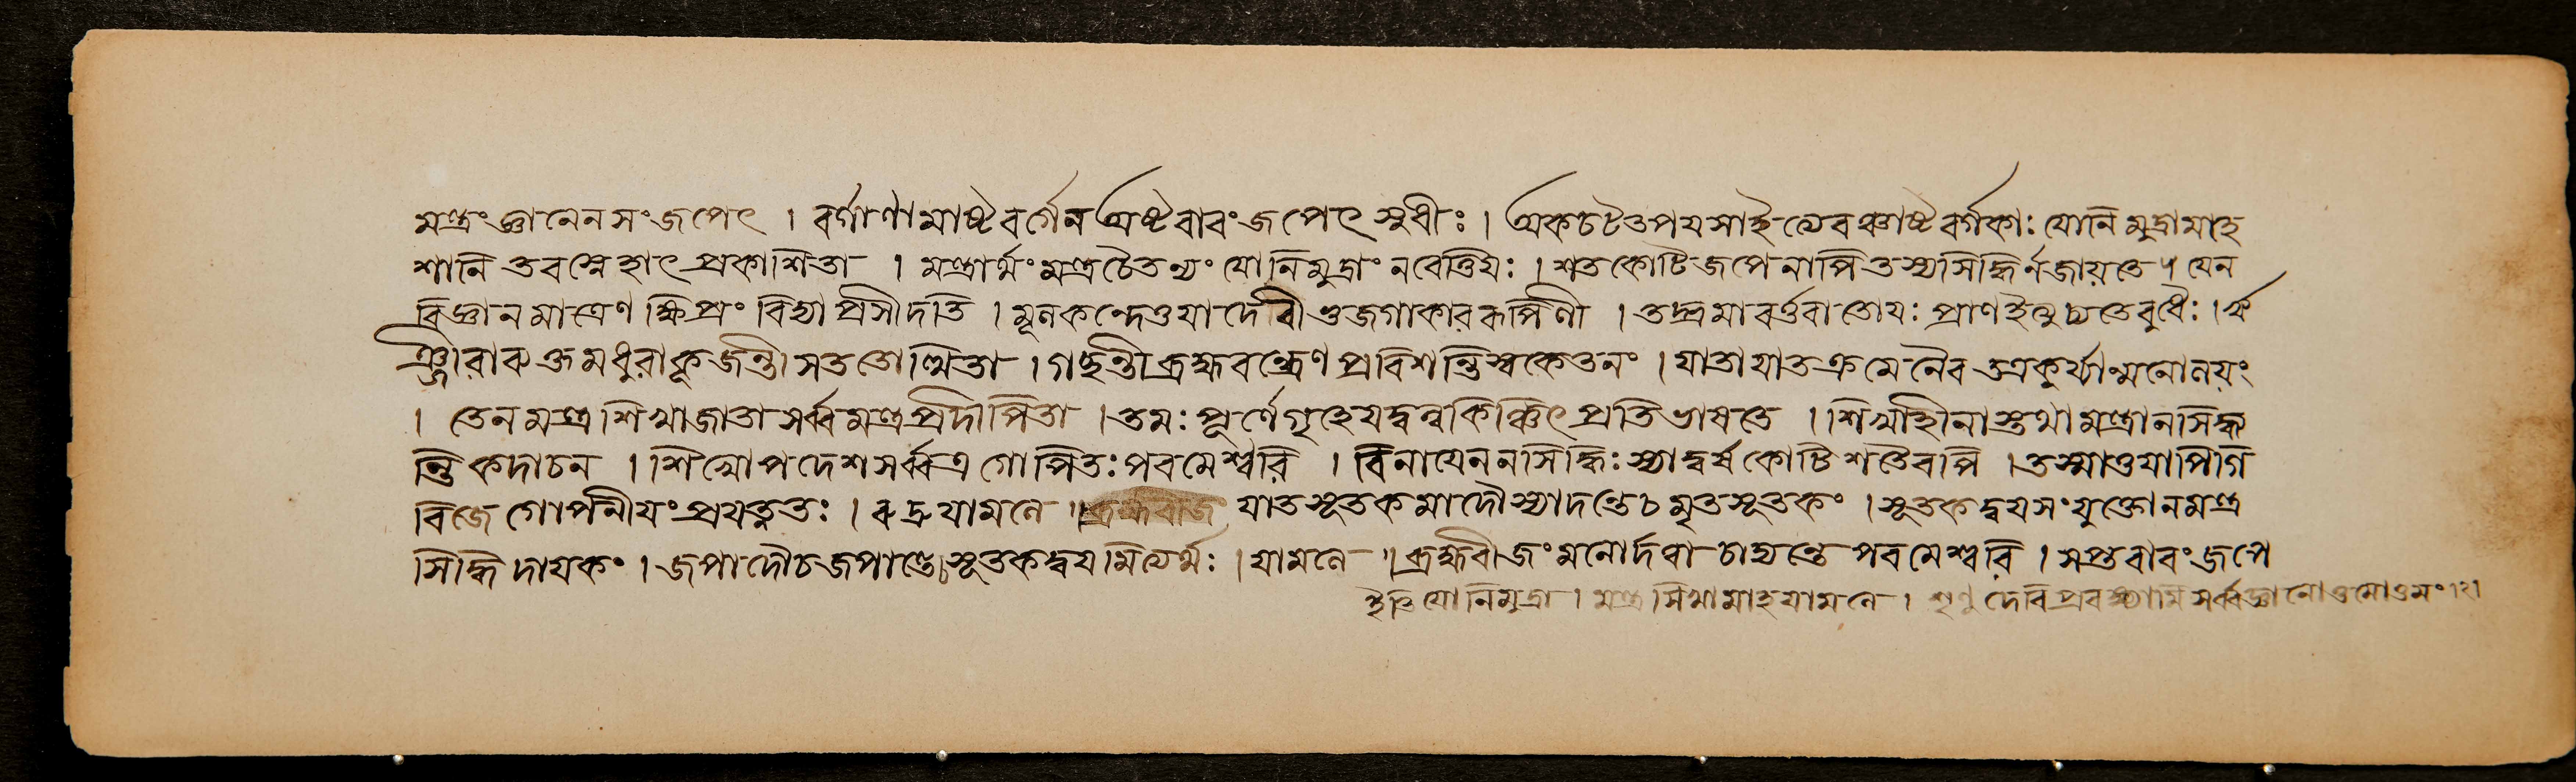 মন্ত্রং জ্ঞানেন সংজপেৎ । বর্গাণামাষ্টবর্গেন অষ্টবাবং জপেৎ সুধীঃ । অকচটতপযসাইত্যেবঞ্চাষ্টবর্গকাঃ যোনিমুদ্রামাহ
শানি তবস্নেহাৎ প্রকাশিতা । মন্ত্রার্থং মন্ত্রচৈতন্যং যোনিমুদ্রাং নবেত্তিযঃ । শতকোটিজপেনাপি তস্যসিদ্ধির্নজায়তে ৺ যেন
বিজ্ঞানমাত্রেণ ক্ষিপ্রং বিদ্যাপ্রসীদতি । মূলকন্দেতুযাদেবী ভুজগাকাররূপিণী । তদ্ভ্রমাবর্ত্তবাতোযঃ প্রাণইত্যুচ্যতেবুধৈঃ ।
ঞ্জীরাব্যক্তমধুরাকূজন্তী সততোত্থিতা । গচ্ছন্তী ব্রহ্মরন্ধ্রেণ প্রবিশন্তিস্বকেতনং । যাতাযাতক্রমেনৈব তত্রকুর্য্যান্মনোলয়ং
। তেন মন্ত্রশিখাজাতা সর্ব্বমন্ত্রপ্রদীপিতা । তমঃপূর্ণেগৃহেযদ্বন্নকিঞ্চিৎ প্রতিভাষতে । শিখাহীনাস্তথামন্ত্রানসিদ্ধ্য
ন্তি কদাচন । শিখোপদেশসর্ব্বত্র গোপিতঃ পবমেশ্বরি । বিনাযেননসিদ্ধিঃস্যাদ্বর্ষকোটিশতৈবপি । তস্মাত্তযাপিগি
বিজে গোপনীযং প্রযত্নতঃ । রুদ্রযামলে ॥ যাতসূতকমাদৌস্যাদন্তেচমৃতসূতকং । সূতকদ্বযসংযুক্তোনমন্ত্র
সিদ্ধিদাযকং । জপাদৌচজপান্তেচসূতকদ্বযমিত্যর্থঃ । যামলে ॥ ব্রহ্মবীজং মনোর্দত্বা চাদ্যন্তে পবমেশ্বরি । সপ্তবাবং জপে
ইতি যোনিমুদ্রা । মন্ত্রসিখামাহ যামলে । শৃণু দেবি প্রবক্ষ্যামি সর্ব্বজ্ঞানোত্তমোত্তমং ।২।